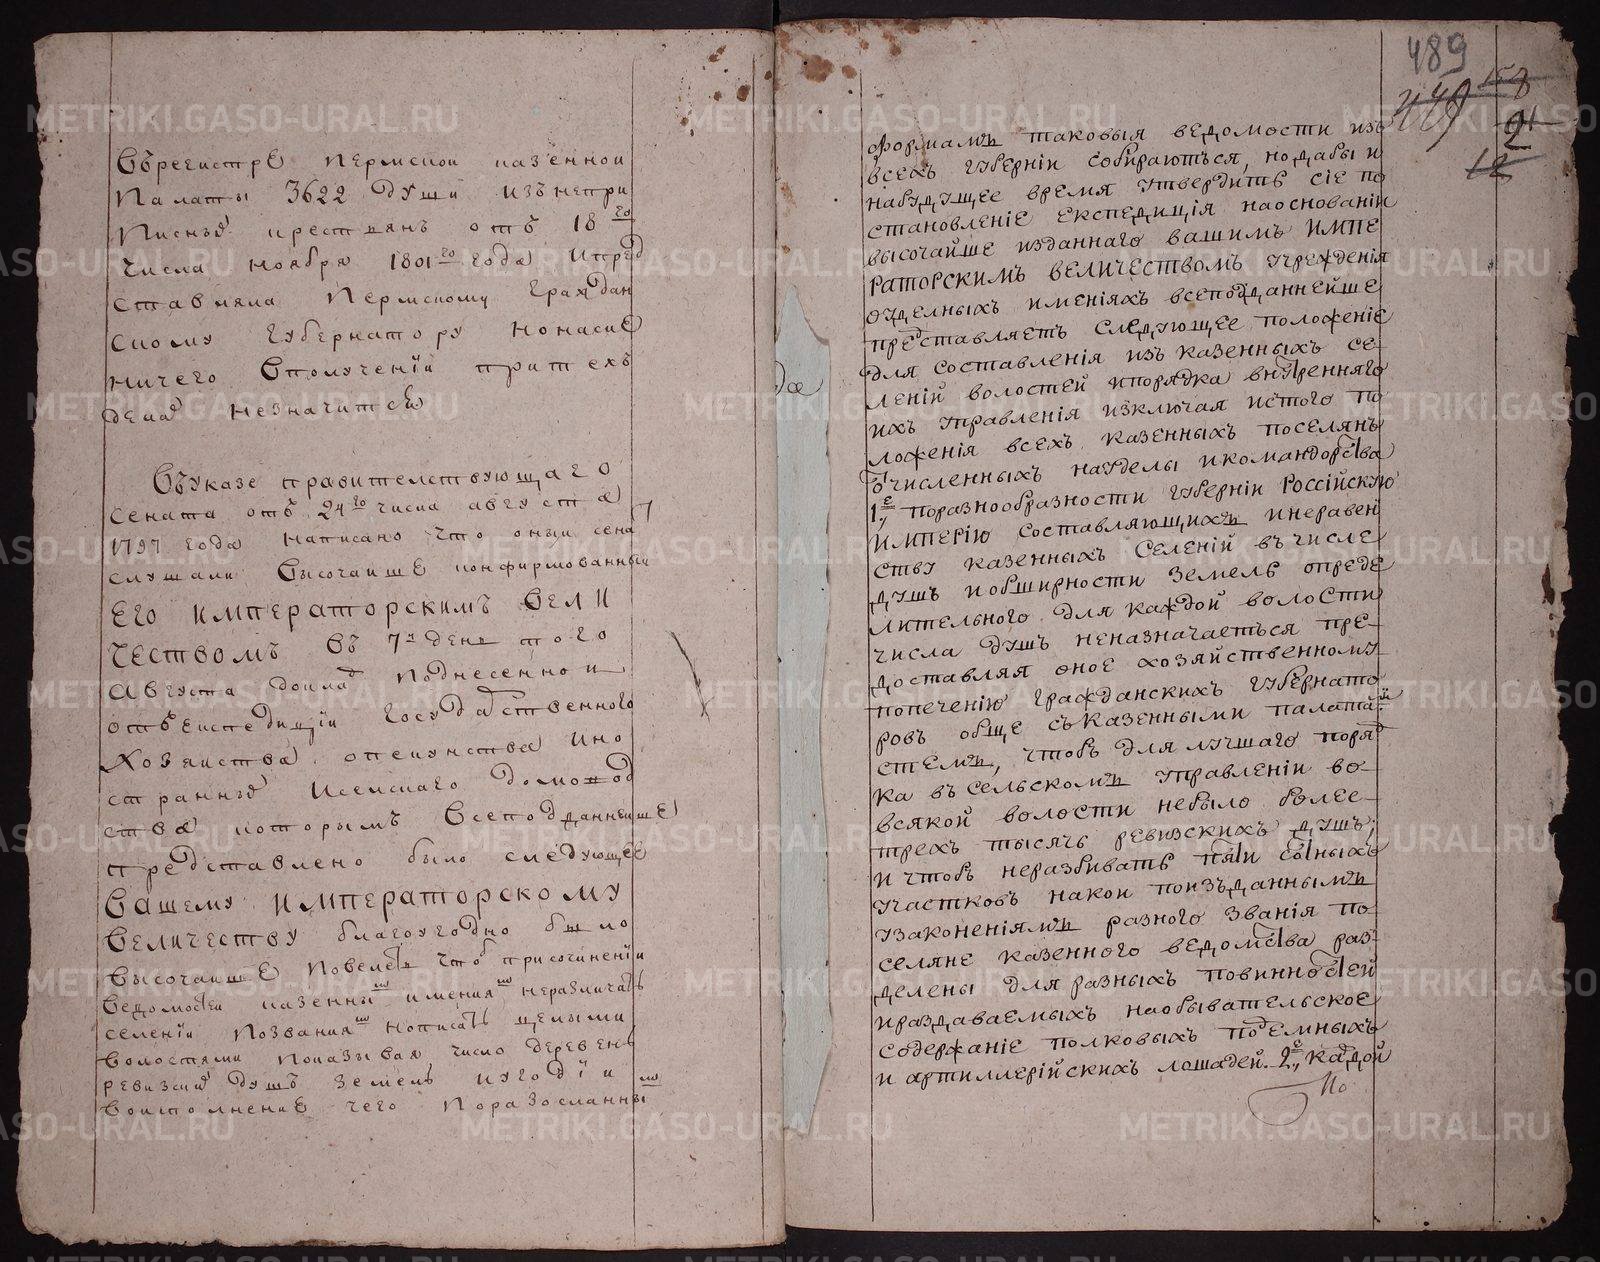 Върегистрѣ пермской казенной
палаты 3622 души изъ непри
писныхъ крестьянъ отъ 18го
числа ноября 1801го года Ипред
ставляла пермскому граждан
скому губернатору
ничего Вполученiи притехъ
делахъ незначится
Въуказе правителствующаго
сената отъ 24го числа августа
1797 года написано что оный сенатъ
слушали Высочайше конфирмованный
Его императорскимъ вели
чествомъ въ 7й день того
августа докладъ поднесенной
отъ експедицiи государственного
хозяйства опекунства ино
странныхъ исельскаго домовод
ства которымъ всеподданнейше
представлено было следующее
Вашему императорскому
величеству благоугодно было
высочайше повелеть чтоб присочиненiи
ведомостей казеннымъ имениямъ неразличать
селенiй позваниямъ нописать целыми
волостями показывая число деревень
ревизскихъ душъ земель иугодiй
воисполнение чего поразосланнымъ
489
449
158
2
12
формамъ таковыя ведомости изъ
всехъ губернiй собираються, нодабы и
набудущее время утвердить сiе по
становленiе експедицiя наоснованiи
высочайше изданнаго вашимъ импе
раторскимъ величествомъ учрежденiя
оуделныхъ именiяхъ всеподданнейше
представляетъ следующее положенiе
для составленiя изъ казенныхъ се-
ленiй волостей ипорядка внутренняго
ихъ управленiя изключая истого по
ложенiя всехъ казенныхъ поселянъ
отчисленныхъ науделы икомандорства
1е, поразнообразности губернiи Россiйскую
империю составляющихъ инеравен
ству казенныхъ селенiй въ числе
душъ иобширности земель опреде
лительного для каждой волости
числа душъ неназначаеться пре-
доставляя оное хозяйственному
попеченiю гражданскихъ губернато
ровъ обще съ казенными палатами
стемъ, чтобъ для лучшаго поряд
ка въ сельскомъ управленiи во-
всякой волости небыло более
трехъ тысячь ревизскихъ душъ;
и чтобъ неразбивать пяти сотныхъ
участковъ накои поизъданнымъ
узаконенiямъ разного званiя по-
селяне казенного ведомства раз-
делены для разныхъ повинностей
ираздаваемыхъ наобывательское
содержанiе полковыхъ подемныхъ
и артиллерiйскихъ лошадей. 2е, каждой
по